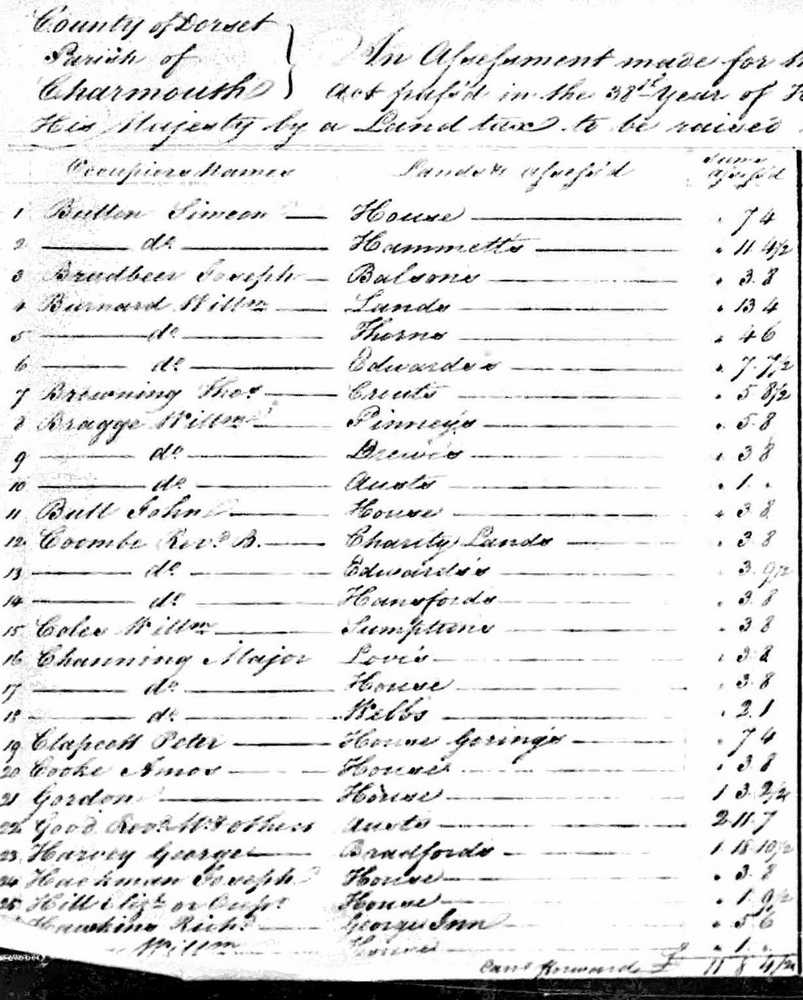 County of Dorset
Parish of
Charmouth
An Assessment made for th
Act pass'd in the 38th Year of H
His Majesty by a Land tax to be raised
Occupiers Names Lands &c Assess'd Sums Assess'd
1 Butten Simeon House . 7 4
2 do Hammetts . 11 4½
3 Bradbeer Joseph Balsons . 3 8
4 Burnard Willm Lands . 13 4
5 do Thorns . 4 6
6 do Edwards's . 7 7½
7 Browning Thos Crents . 5 8½
8 Bragge Willm Pinney's . 5 8
9 do Drewe's . 3 8
10 do Austs . 1 .
11 Bull John House . 3 8
12 Coombe Revd B. Charity Lands . 3 8
13 do Edwards's . 3 9½
14 do Hansfords . 3 8
15 Coles Willm Sumptons . 3 8
16 Channing Major Love's . 3 8
17 do House . 3 8
18 do Webbs . 2 1
19 Clapcott Peter House Goring's . 7 4
20 Cooke Amos House . 3 8
21 Gordon House 1 3 2½
22 Good Revd Wm & others Austs 2 11 7
23 Harvey George Bradfords 1 18 10½
24 Hackman Joseph House . 3 8
25 Hill Elizth or Occupr House . 1 9½
Hawkins Richd George Inn . 5 6
Willm House . 1 .
Card forward £ 11 8 4½